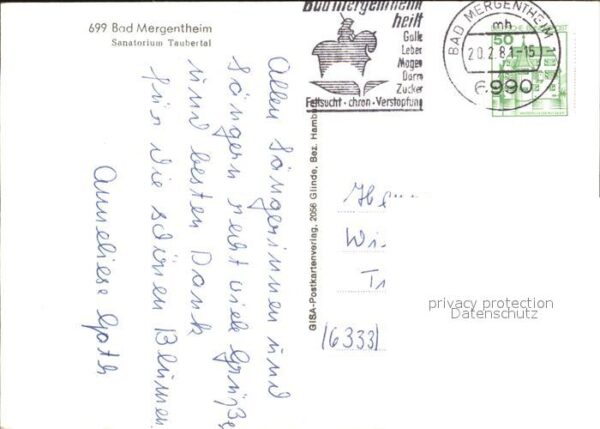 699 Bad Mergentheim
Sanatorium Taubertal
Allen Sängerinnen und
Sängern recht viele Grüße
und besten Dank
für die schönen Blumen
Anneliese Goth
GISA-Postkartenverlag, 2056 Glinde, Bez. Hamburg
Bad Mergentheim
heilt
Galle
Leber
Magen
Darm
Zucker
Fettsucht · chron · Verstopfung
BAD MERGENTHEIM
mh
20.2.81-15
6990
50
Wi
(6333)
privacy protection
Datenschutz